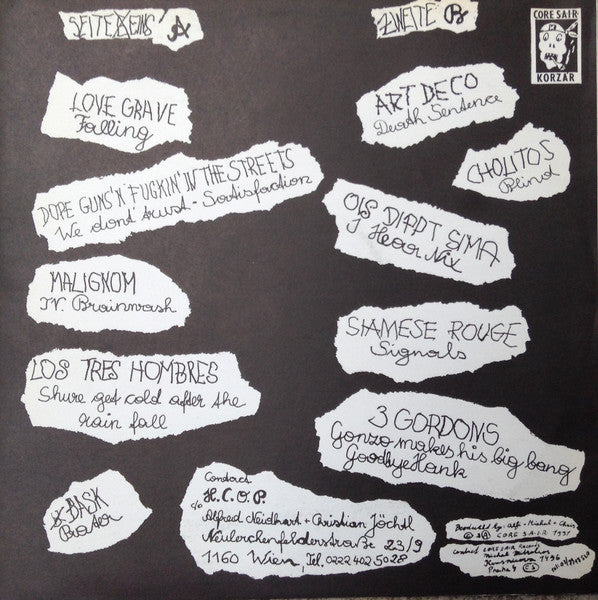 SEITE EINS A
LOVE GRAVE
Falling
DOPE GUNS'N'FUCKIN' IN THE STREETS
We dont trust - Satisfaction
MALIGNOM
TV. Brainwash
LOS TRES HOMBRES
Shure get cold after the
rain fall
BASK
Prater
ZWEITE B
CORE SAIR
KORZAR
ART DECO
Death Sentence
CHOLITOS
Blind
OIS DIPPT SIMA
I Hear Nix
SIAMESE ROUGE
Signals
3 GORDONS
Gonzo makes his big bang
Goodbye Hank
Contact
H.C.O.P.
c/o
Alfred Neidhart + Christian Jöchtl
Neulerchenfelderstraße 23/9
1160 Wien, Tel. 0222 402 50 28
Produced by: Alf - Michal + Chris
CORE SAIR 1991
contact CORE SAIR Records
Michal
1496
Praha 4